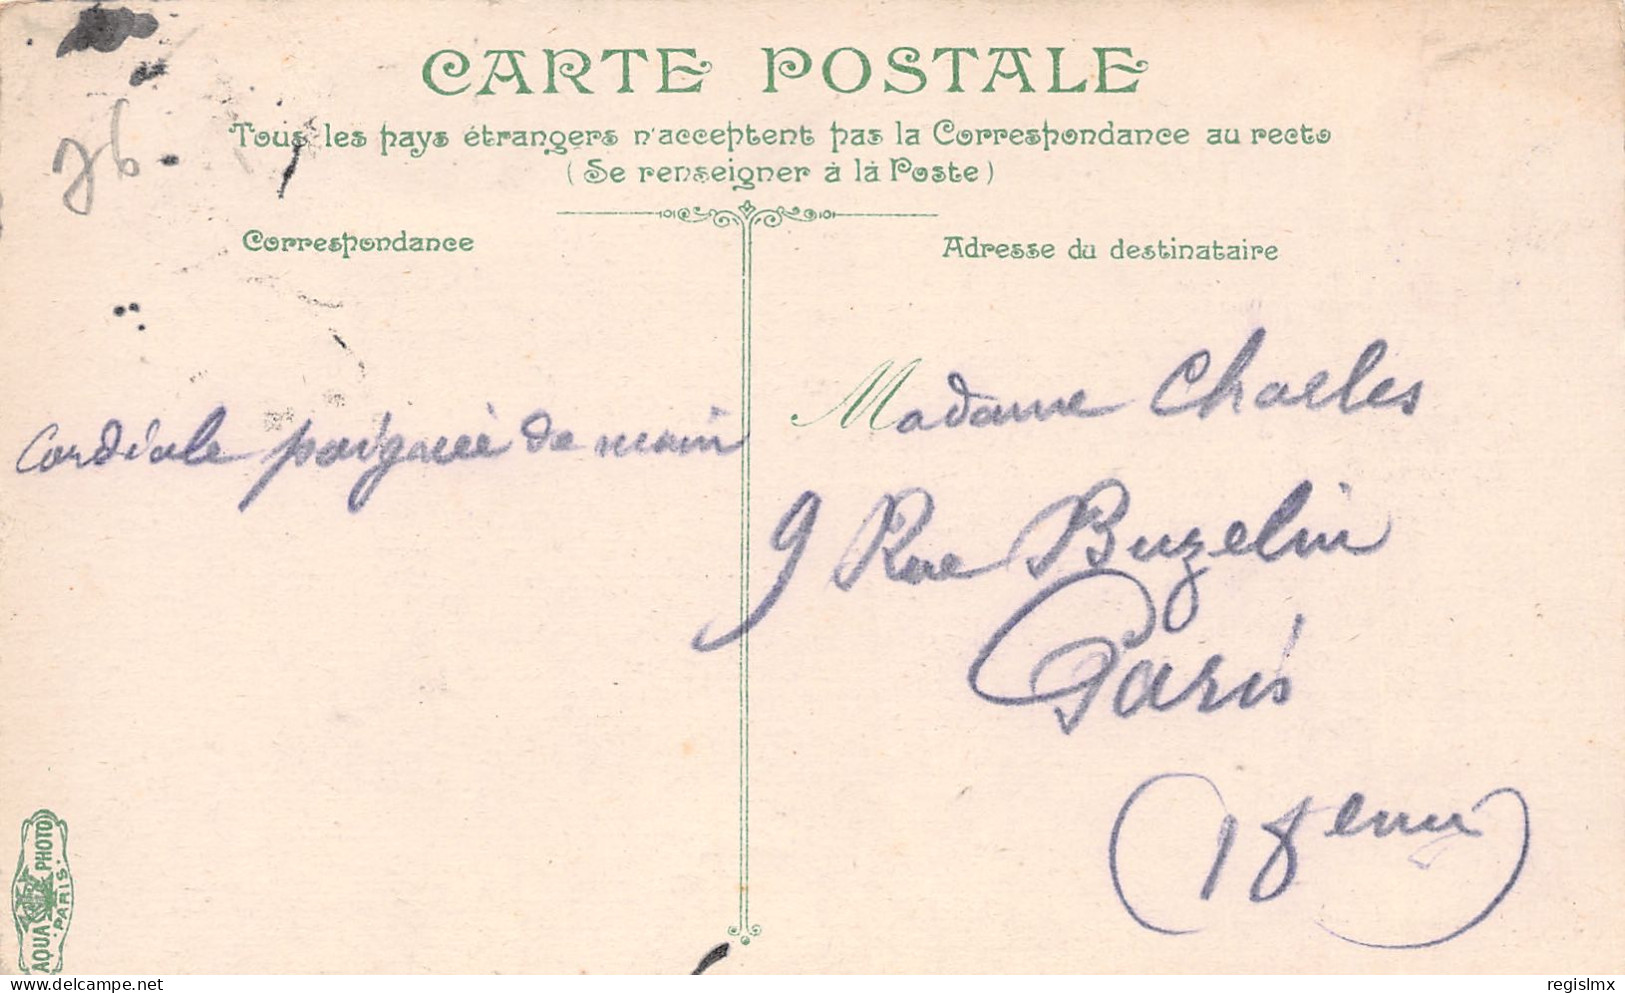 CARTE POSTALE
Tous les pays étrangers n'acceptent pas la Correspondance au recto
(Se renseigner à la Poste)
Correspondance
Adresse du destinataire
Cordiale poignée de main
Madame Charles
9 Rue Buzelin
Paris
(18eme)
AQUA PHOTO
PARIS
delcampe.net
regislmx